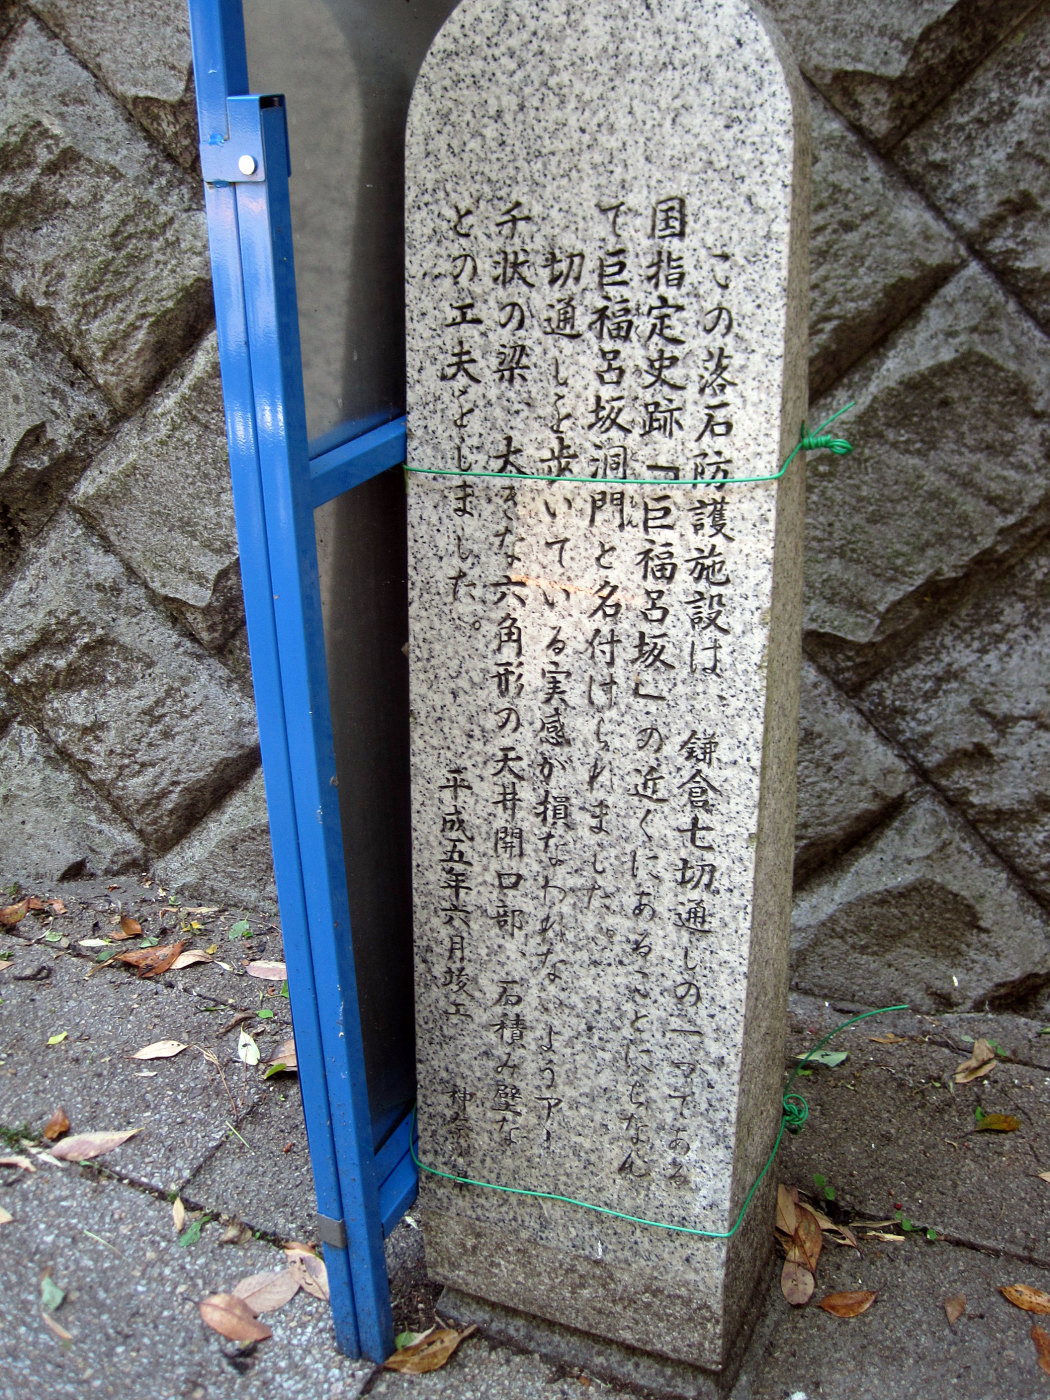 この落石防護施設は 鎌倉七切通しの一つである
国指定史跡「巨福呂坂」の近くにあることにちなん
で巨福呂坂洞門と名付けられました。
切通しを歩いている実感が損なわれない ようアー
チ状の梁、大きな六角形の天井開口部 石積み壁な
どの工夫をしました。
平成五年六月竣工